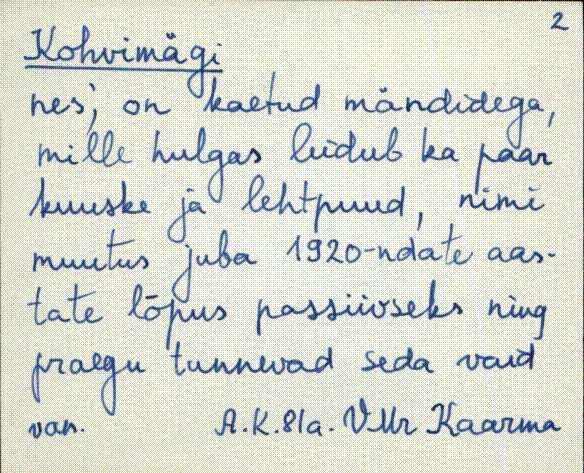 2
Kohvimägi
nes', on kaetud mändidega,
mille hulgas leidub ka paar
kuuske ja lehtpuud, nimi
muutus juba 1920-ndate aas-
tate lõpus passiivseks ning
praegu tunnevad seda vaid
van. A.K. 81a. VMr Kaarma